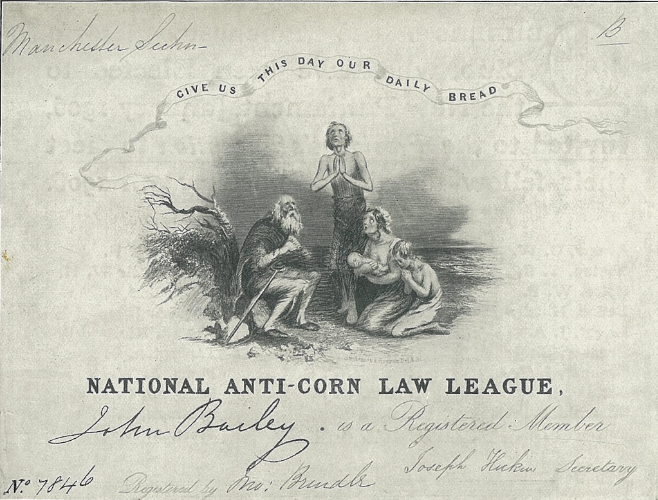 Manchester
B
GIVE US THIS DAY OUR DAILY BREAD
NATIONAL ANTI-CORN LAW LEAGUE,
John Bailey . is a Registered Member
Joseph Hickin Secretary
No. 7846 Registered by Jno: Brindle